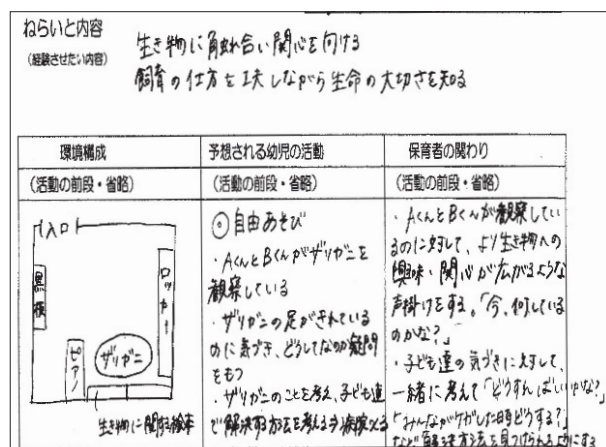 ねらいと内容
(経験させたい内容)
生き物に触れ合い関心を向ける
飼育の仕方を工夫しながら生命の大切さを知る
環境構成
予想される幼児の活動
保育者の関わり
(活動の前段・省略)
(活動の前段・省略)
(活動の前段・省略)
入口
黒板
ロッカー
ピアノ
ザリガニ
生き物に関する絵本
◎自由あそび
・AくんとBくんがザリガニを
観察している
・ザリガニの足がきれている
のに気づき、どうしてなのか疑問
をもつ
・ザリガニのことを考え、子ども達
で解決する方法を考える
・AくんとBくんが観察してい
るのに対して、より生き物への
興味・関心が広がるような
声掛けをする。「今、何している
のかな?」
・子ども達の気づきに対して、
一緒に考えて「どうすればいいかな?」
「みんながケガした時どうする?」
など解決方法を見つけられるようにする